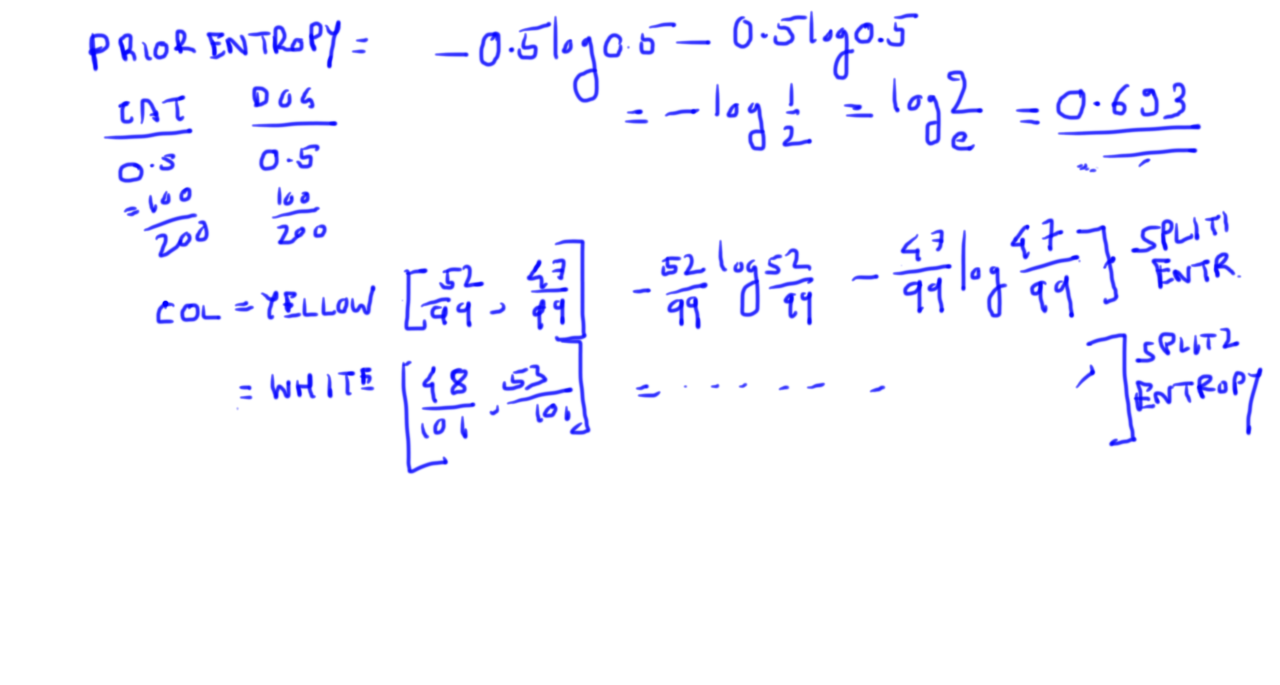 PRIOR ENTROPY = -0.5log0.5 - 0.5log0.5
= -log 1/2 = log_e 2 = 0.693
CAT DOG
0.5 0.5
=100/200 100/200
COL = YELLOW [52/99, 47/99] -52/99 log 52/99 - 47/99 log 47/99] SPLIT1 ENTR.
= WHITE [48/101, 53/101] = ....... ] SPLIT2 ENTROPY